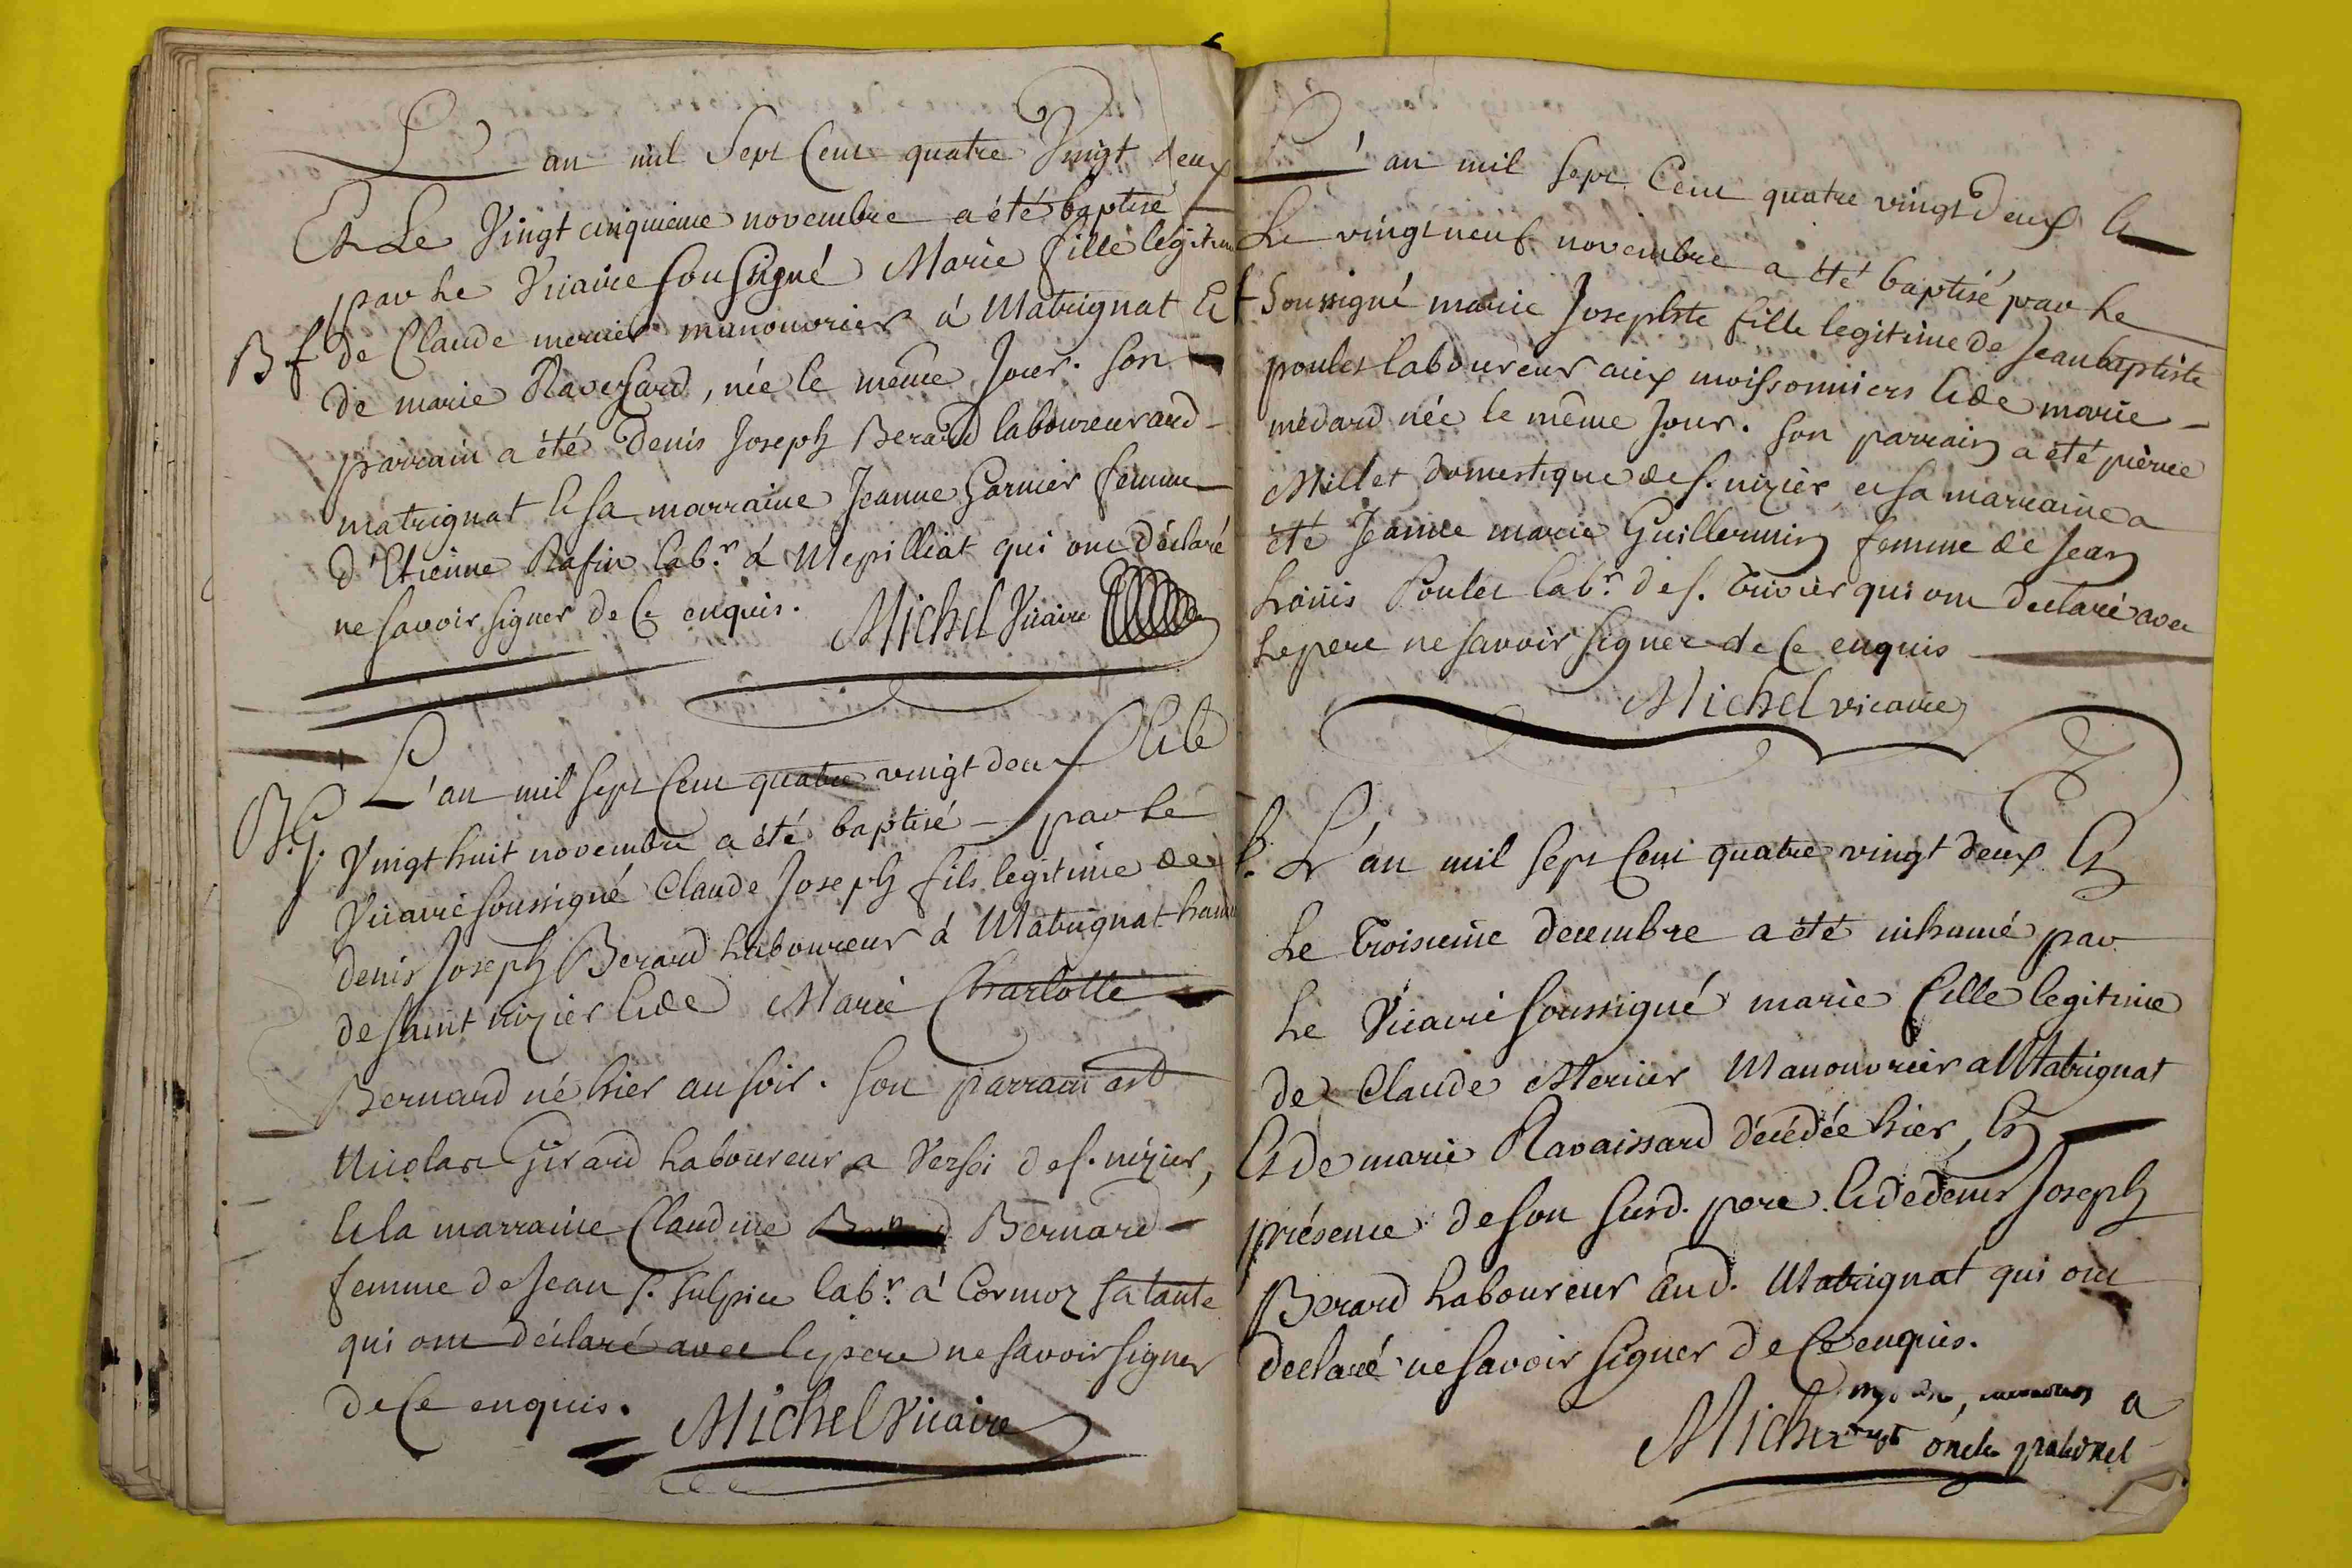 L'an mil Sept Cent quatre Vingt deux
Et Le Vingt cinquieme novembre a été baptisé
par Le Vicaire Soussigné Marie fille legitime
B f de Claude mercier manouvrier à Matrignat Et
de marie Ravessard, née le même Jour. Son
parrain a été Denis Joseph Berard laboureur aud
matrignat Et sa marraine Jeanne Garnier femme
d'Etienne Rafin lab.r à Mepilliat qui ont déclaré
ne savoir signer de Ce enquis. Michel Vicaire
B.G. L'an mil sept Cent quatre vingt deux Et le
Vingt huit novembre a été baptisé par Le
Vicaire soussigné Claude Joseph fils legitime de
denis Joseph Berard Laboureur à Matrignat
de saint nizier Et de Marie Charlotte
Bernard né hier au soir. Son parrain est
Nicolas Girard Laboureur a Versoi de s. nizier,
Et la marraine Claudine Bernard
femme de Jean s. Sulpice lab.r à Cormoz sa tante
qui ont déclaré avec le pere ne savoir signer
de Ce enquis. Michel Vicaire
L'an mil sept Cent quatre vingt deux Et
Le vingt neuf novembre a été baptisé par Le
f Soussigné marie Josephte fille legitime de Jean baptiste
poulet laboureur aux moissonniers Et de marie
médard née le même Jour. Son parrain a été pierre
Millet domestique de s. nizier et sa marraine a
été Jeanne marie Guillermin femme de Jean
Louis Poulet lab.r de s. trivier qui ont déclaré avec
Le pere ne savoir signer de Ce enquis
Michel vicaire
S. L'an mil sept Cent quatre vingt deux Et
Le troisieme decembre a été inhumé par
Le Vicaire soussigné marie fille legitime
de Claude Mercier Manouvrier a Matrignat
Et de marie Ravaissard décédée hier, En
présence de son susd. pere Et de denis Joseph
Berard Laboureur aud. Matrignat qui ont
declaré ne savoir signer de Ce enquis.
a
Michel oncle paternel